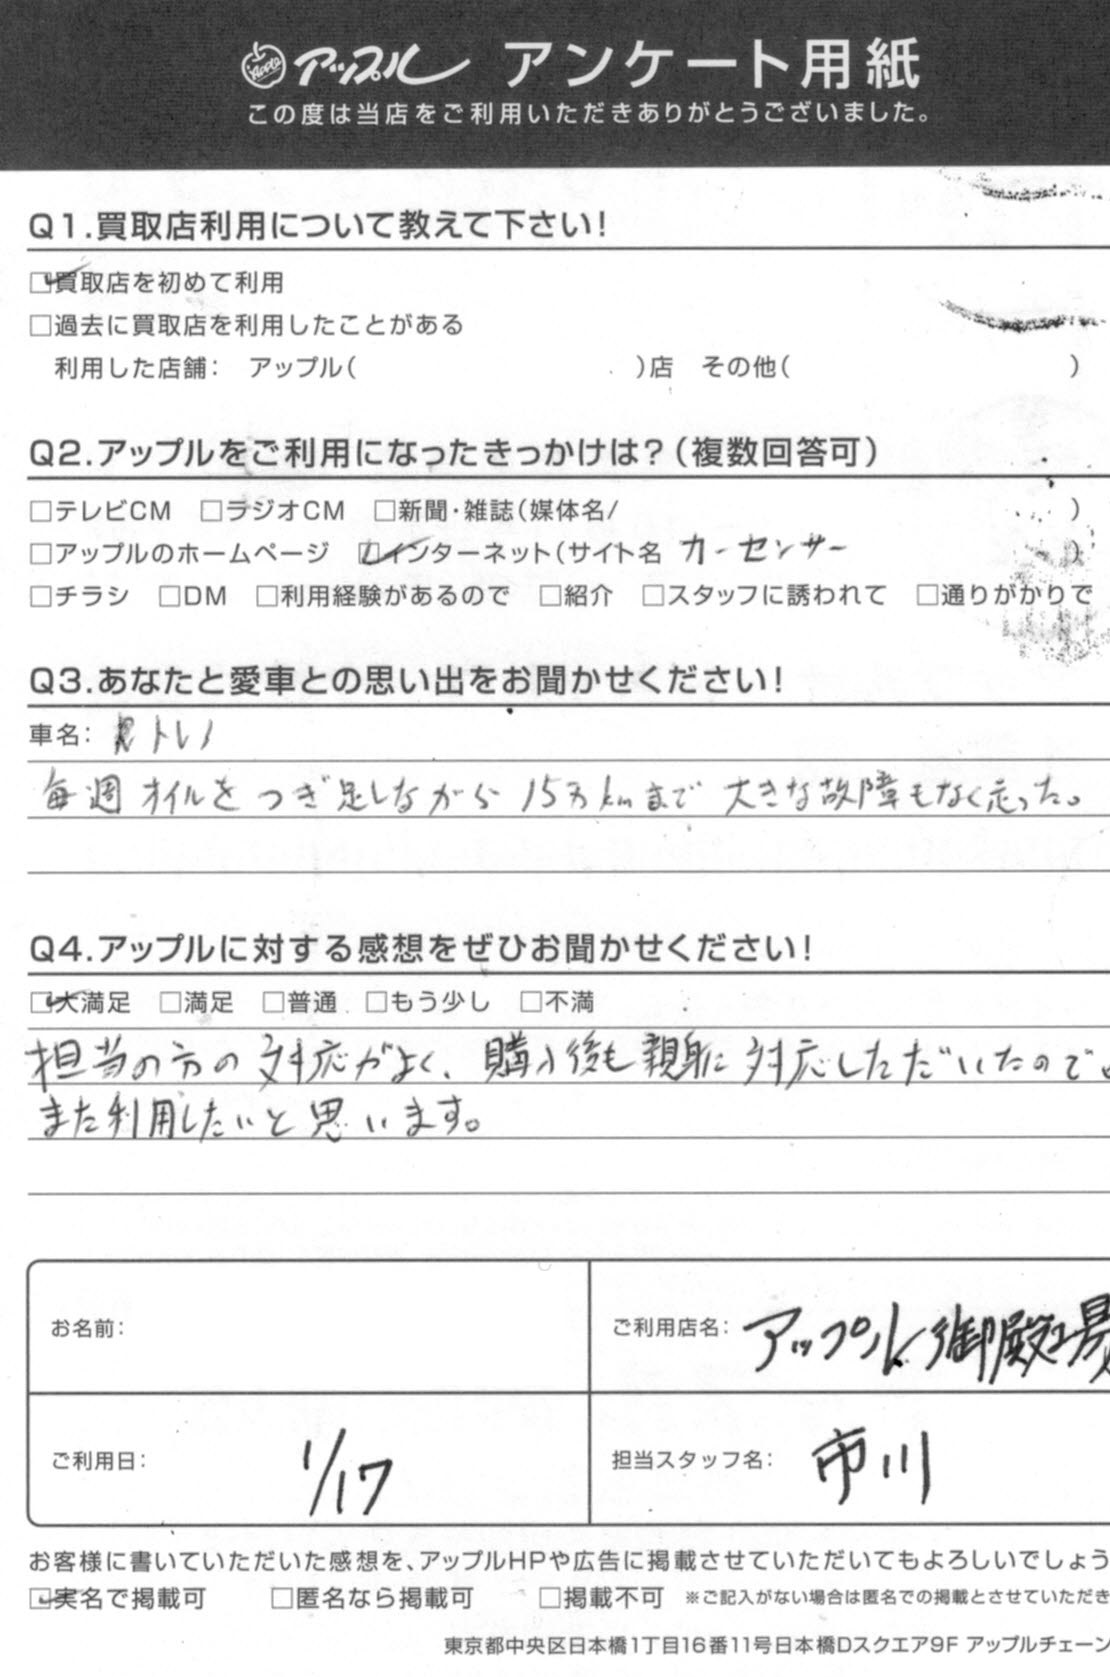 Apple アップル アンケート用紙
この度は当店をご利用いただきありがとうございました。
Q1.買取店利用について教えて下さい!
☑買取店を初めて利用
□過去に買取店を利用したことがある
利用した店舗: アップル( )店 その他( )
Q2.アップルをご利用になったきっかけは?(複数回答可)
□テレビCM □ラジオCM □新聞・雑誌(媒体名/ )
□アップルのホームページ ☑インターネット(サイト名 カーセンサー )
□チラシ □DM □利用経験があるので □紹介 □スタッフに誘われて □通りがかりで
Q3.あなたと愛車との思い出をお聞かせください!
車名: トレノ
毎週オイルをつぎ足しながら15万kmまで大きな故障もなく走った。
Q4.アップルに対する感想をぜひお聞かせください!
☑大満足 □満足 □普通 □もう少し □不満
担当の方の対応がよく、購入後も親身に対応しただいたので。
また利用したいと思います。
お名前:
ご利用店名: アップル御殿場
ご利用日: 1/17
担当スタッフ名: 市川
お客様に書いていただいた感想を、アップルHPや広告に掲載させていただいてもよろしいでしょう
☑実名で掲載可 □匿名なら掲載可 □掲載不可 ※ご記入がない場合は匿名での掲載とさせていただき
東京都中央区日本橋1丁目16番11号日本橋Dスクエア9F アップルチェーン